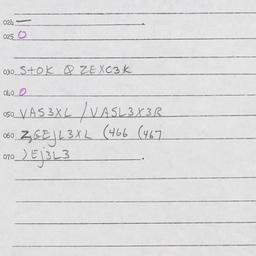 024 —
025 O
030 StOK Q ZEXC3K
040 O
050 VAS3XL / VASL3X3R
060 Z,GEjL3XL (466 (467
070 ) Ej3L3 .